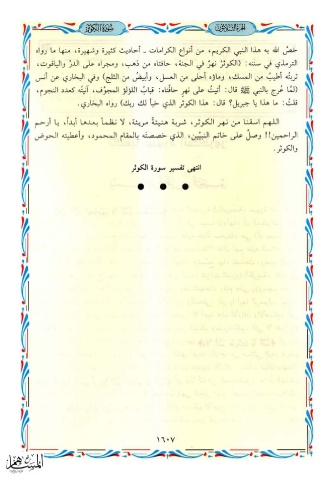 سورة الكوثر
الجزء الثلاثون
خصَّ الله به هذا النبي الكريم، من أنواع الكرامات ـ أحاديث كثيرة وشهيرة، منها ما رواه
الترمذي في سننه: (الكوثرُ نهرٌ في الجنة، حافتاه من ذهب، ومجراه على الدرِّ والياقوت،
تربتُه أطيبُ من المسك، وماؤه أحلى من العسل، وأبيضُ من الثلج) وفي البخاري عن أنس
(لمَّا عُرج بالنبي ﷺ قال: أتيتُ على نهرٍ حافتاه: قبابُ اللؤلؤ المجوَّف، آنيتُه كعدد النجوم،
قلتُ: ما هذا يا جبريل؟ قال: هذا الكوثر الذي خبأ لك ربك) رواه البخاري.
اللهم اسقنا من نهر الكوثر، شربة هنيئةً مريئة، لا نظمأ بعدها أبداً، يا أرحم
الراحمين!! وصلِّ على خاتم النبيّين، الذي خصصتَه بالمقام المحمود، وأعطيته الحوض
والكوثر.
انتهى تفسير سورة الكوثر
١٦٠٧